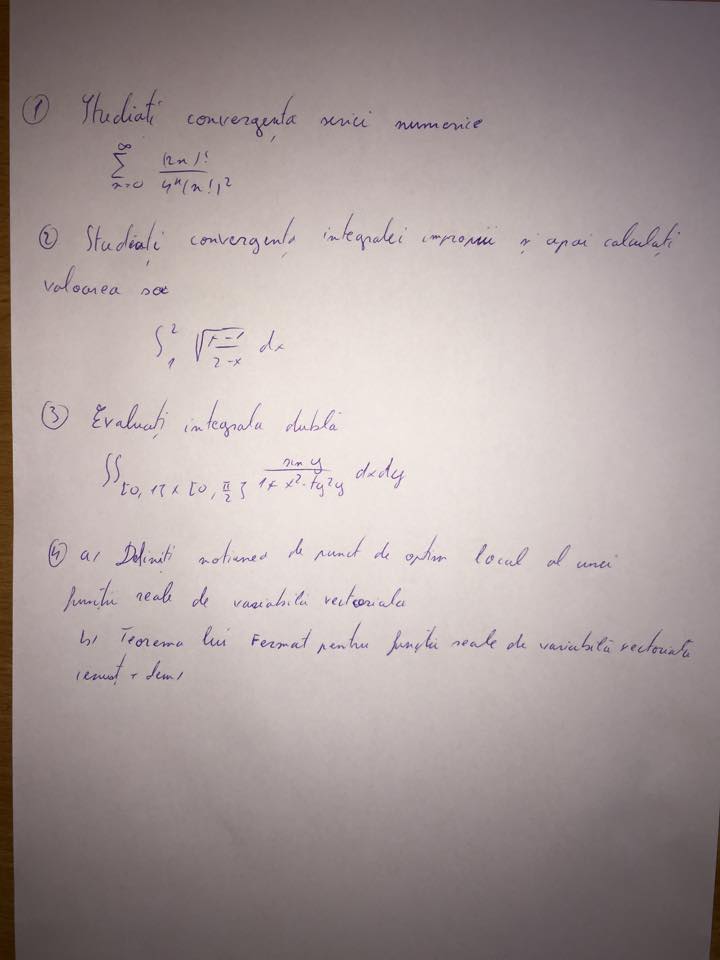 ① Studiați convergența seriei numerice
∑_{n=0}^{∞} (2n)! / 4^n (n!)^2
② Studiați convergența integralei improprii și apoi calculați
valoarea sa
∫_1^2 √((x-1)/(2-x)) dx
③ Evaluați integrala dublă
∬_{[0,1]×[0,π/2]} sin y / (1+x²·tg²y) dxdy
④ a) Definiți notiunea de punct de optim local al unei
funcții reale de variabilă vectoriala
b) Teorema lui Fermat pentru funcții reale de variabilă vectoriala
(enunț + dem)